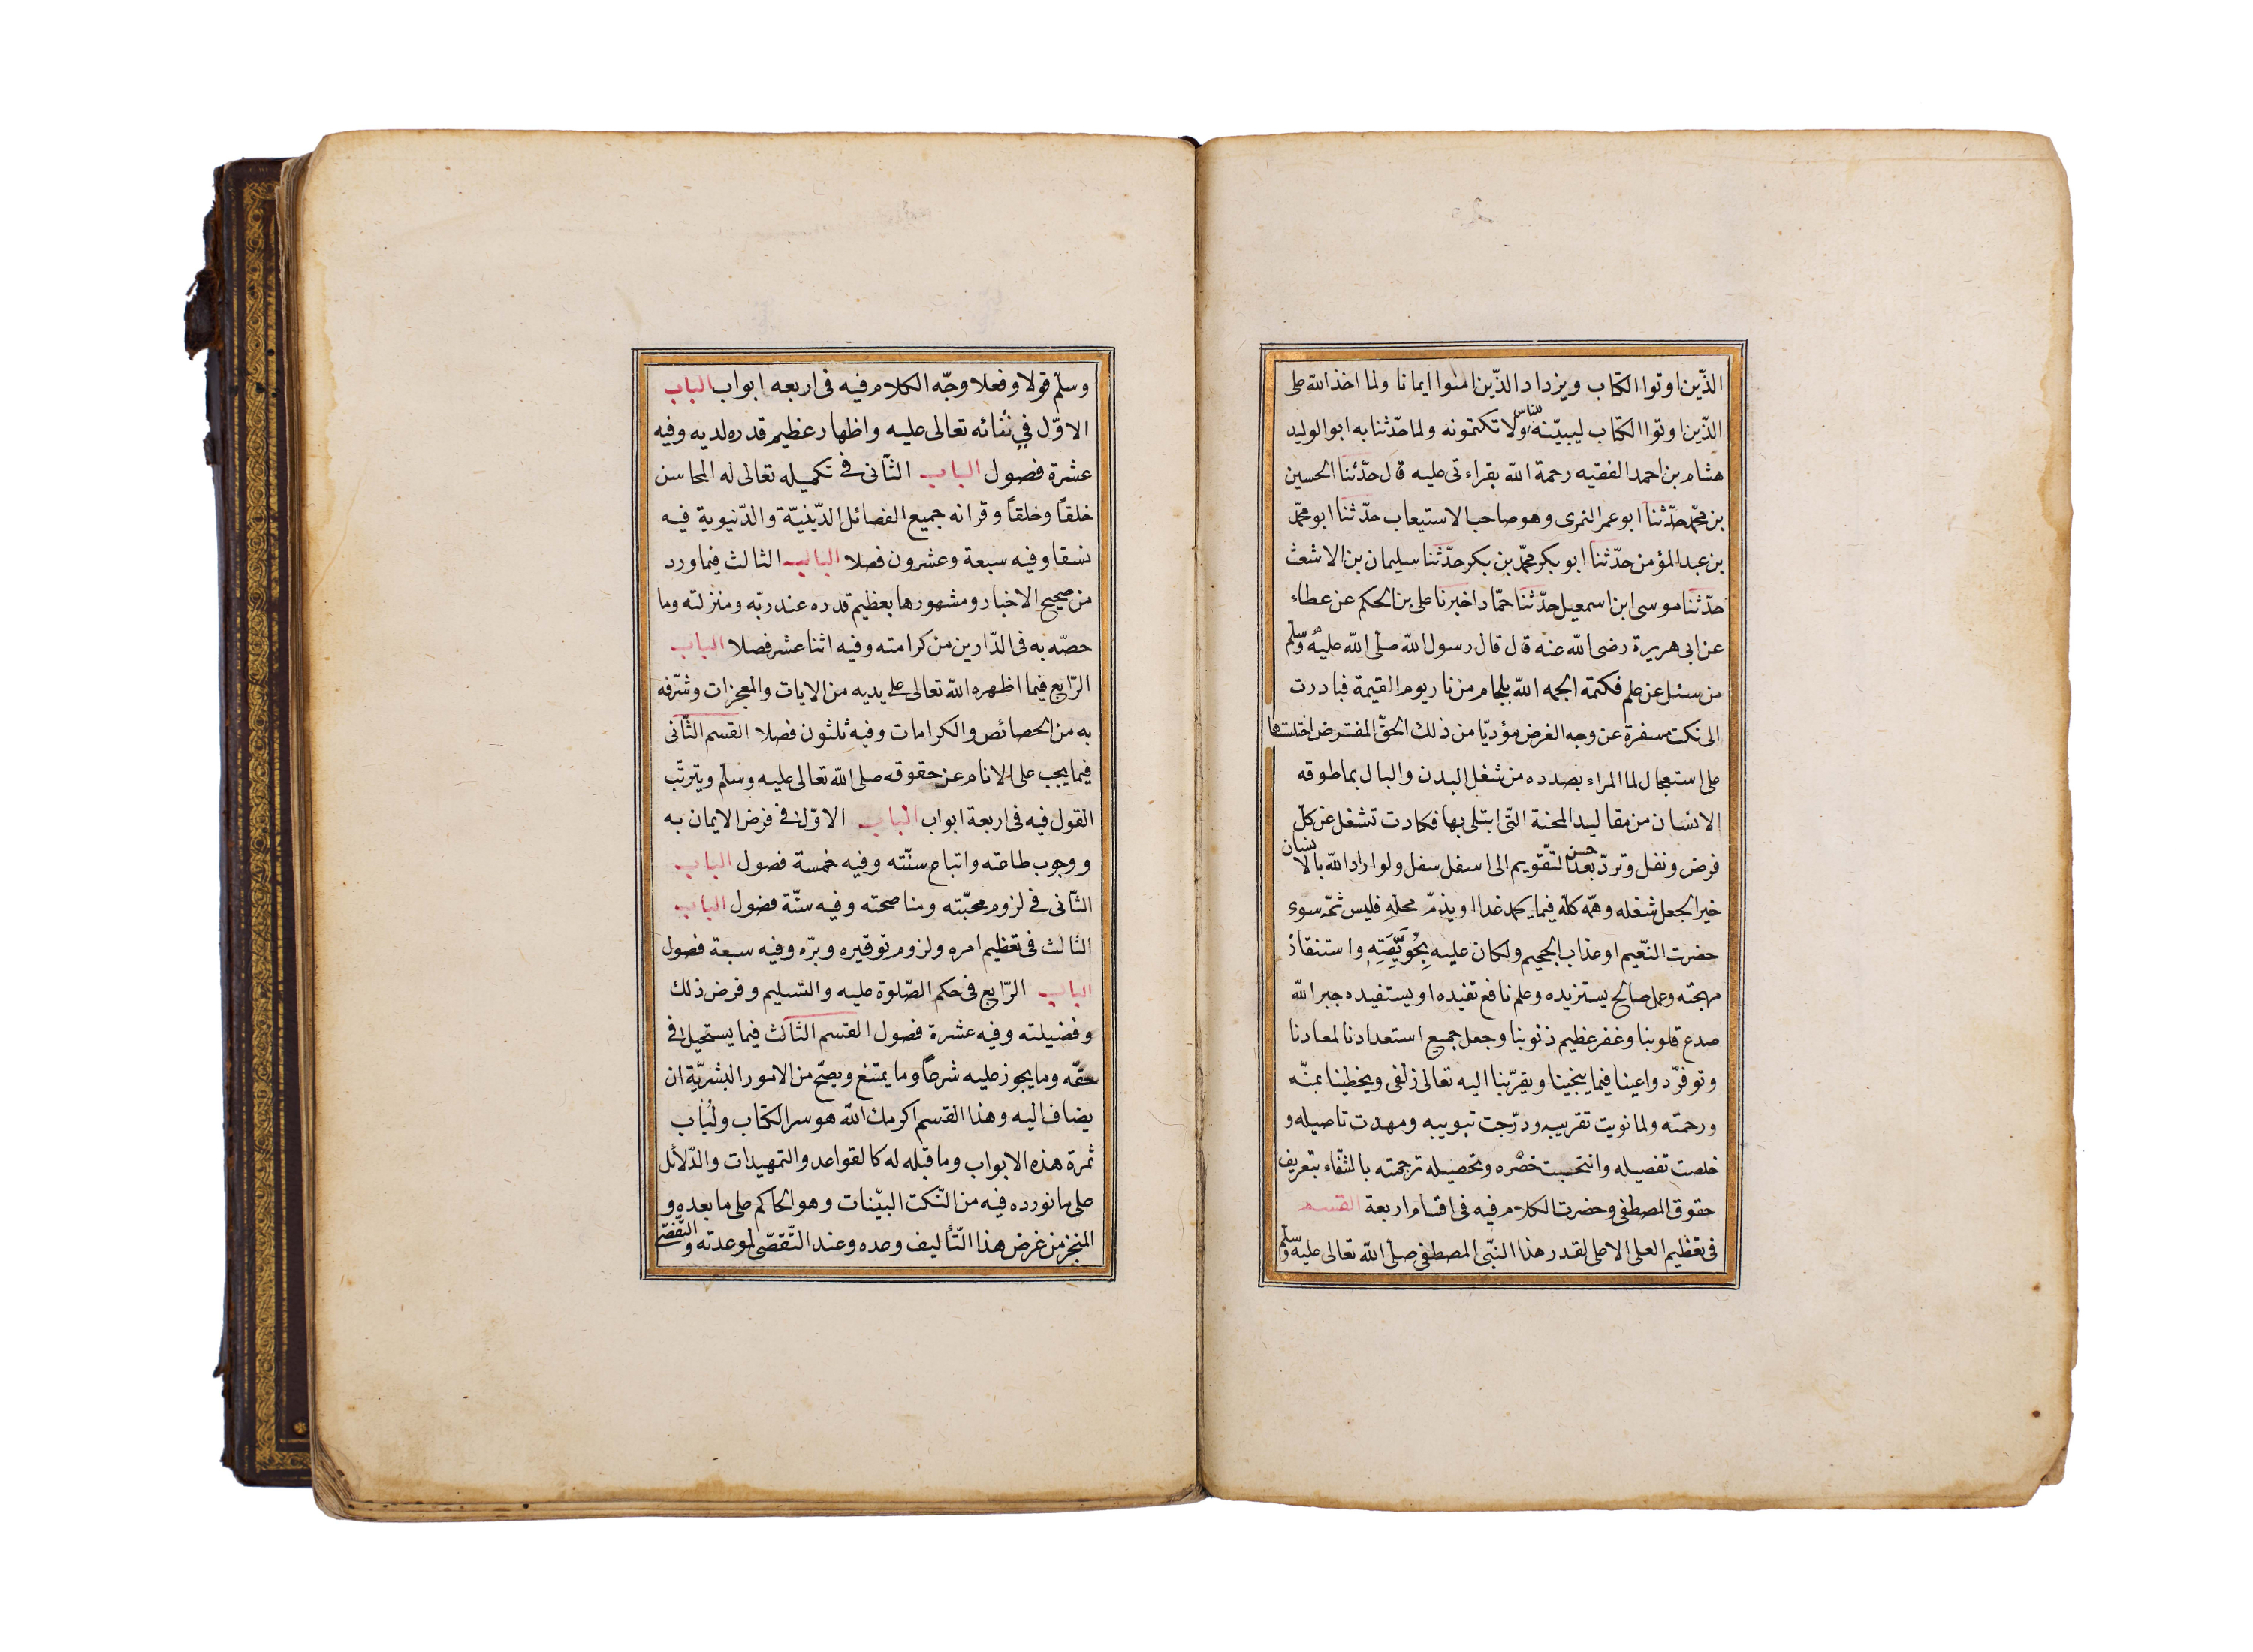 الذّين اوتوا الكتاب ويزداد الذّين امنوا ايمانا ولما اخذ الله على
الذّين اوتوا الكتاب ليبيّننه للناس ولا تكتمونه ولما حدّثنا به ابو الوليد
هشام بن احمد الفقيه رحمة الله بقراءتى عليه قال حدّثنا الحسين
بن محمّد حدّثنا ابو عمر النمرى وهو صاحب الاستيعاب حدّثنا ابو محمّد
بن عبد المؤمن حدّثنا ابو بكر محمّد بن بكر حدّثنا سليمان بن الاشعث
حدّثنا موسى ابن اسمعيل حدّثنا حمّاد اخبرنا على بن الحكم عن عطاء
عن ابى هريرة رضى الله عنه قال قال رسول الله صلّى الله عليه وسلّم
من سئل عن علم فكتمة الجمه الله بلجام من نار يوم القيمة فبادرت
الى نكت مسفرة عن وجه الغرض مؤديّا من ذلك الحقّ المفترض اختلستها
على استعجال لما المراء بصدده من شغل البدن والبال بما طوقه
الانسان من مقاليد المحنة التّى ابتلى بها فكادت تشغل عن كلّ
فرض ونفل وتردّ بعد حسن التّقويم الى اسفل سفل ولو اراد الله بالانسان
خير الجعل شغله وهمّه كلّه فيما يحمد غدا او يذمّ محلّه فليس ثمّه سوى
حضرت النّعيم او عذاب الجحيم ولكان عليه بِخُوَيْصَّتِهِ واستنقاذ
مهجته وعمل صالح يستزيده وعلم نافع تفيده او يستفيده جبر الله
صدع قلوبنا وغفر عظيم ذنوبنا وجعل جميع استعدادنا لمعادنا
وتوفّر دواعينا فيما ينجينا ويقرّبنا اليه تعالى زلفى ويخطينا بمنّه
ورحمته ولما نويت تقريبه ودرّجت تبويبه ومهدت تاصيله و
خلصت تفصيله وانتحبت حصّره وتحصيله ترجمته بالشّفاء بتعريف
حقوق المصطفى وحضرت الكلام فيه فى اقسام اربعة القسم
فى تعظيم العلى الاعلى لقدر هذا النبّى المصطفى صلّى الله تعالى عليه وسلّم
وسلّم قولا وفعلا وجّه الكلام فيه فى اربعه ابواب الباب
الاوّل فى ثنائه تعالى عليه واظهار عظيم قدره لديه وفيه
عشرة فصول الباب الثّانى فى تكميله تعالى له المحاسن
خلقاً وخلقاً وقرانه جميع الفصائل الدّينيّة والدّنيوية فيه
نسقا وفيه سبعة وعشرون فصلا الباب الثالث فيما ورد
من صحيح الاخبار ومشهورها بعظيم قدره عند ربّه ومنزلته وما
حصّه به فى الدّارين من كرامته وفيه اثنا عشر فصلا الباب
الرّابع فيما اظهره الله تعالى على يديه من الايات والمعجزات وشرّفه
به من الحصائص والكرامات وفيه ثلثون فصلا القسم الثّانى
فيما يجب على الانام عن حقوقه صلى الله تعالى عليه وسلّم ويترتّب
القول فيه فى اربعة ابواب الباب الاوّل فى فرض الايمان به
ووجوب طاعته واتباع سنّته وفيه خمسة فصول الباب
الثّانى فى لزوم محبّته ومناصحته وفيه ستّة فصول الباب
الثالث فى تعظيم امره ولزوم توقيره وبرّه وفيه سبعة فصول
الباب الرّابع فى حكم الصّلوة عليه والتسليم وفرض ذلك
وفضيلته وفيه عشرة فصول القسم الثالث فيما يستحيل فى
حقّه وما يجوز عليه شرعاً وما يمتنع ويصحّ من الامور البشريّة ان
يضاف اليه وهذا القسم اكرمك الله هو سر الكتاب ولُباب
ثمرة هذه الابواب وما قبله له كالقواعد والتمهيدات والدّلائل
على ما نورده فيه من النّكت البيّنات وهو الحاكم على ما بعده و
المنجز من غرض هذا التّأليف وعده وعند التّقصّى لموعدته والتّفصّى